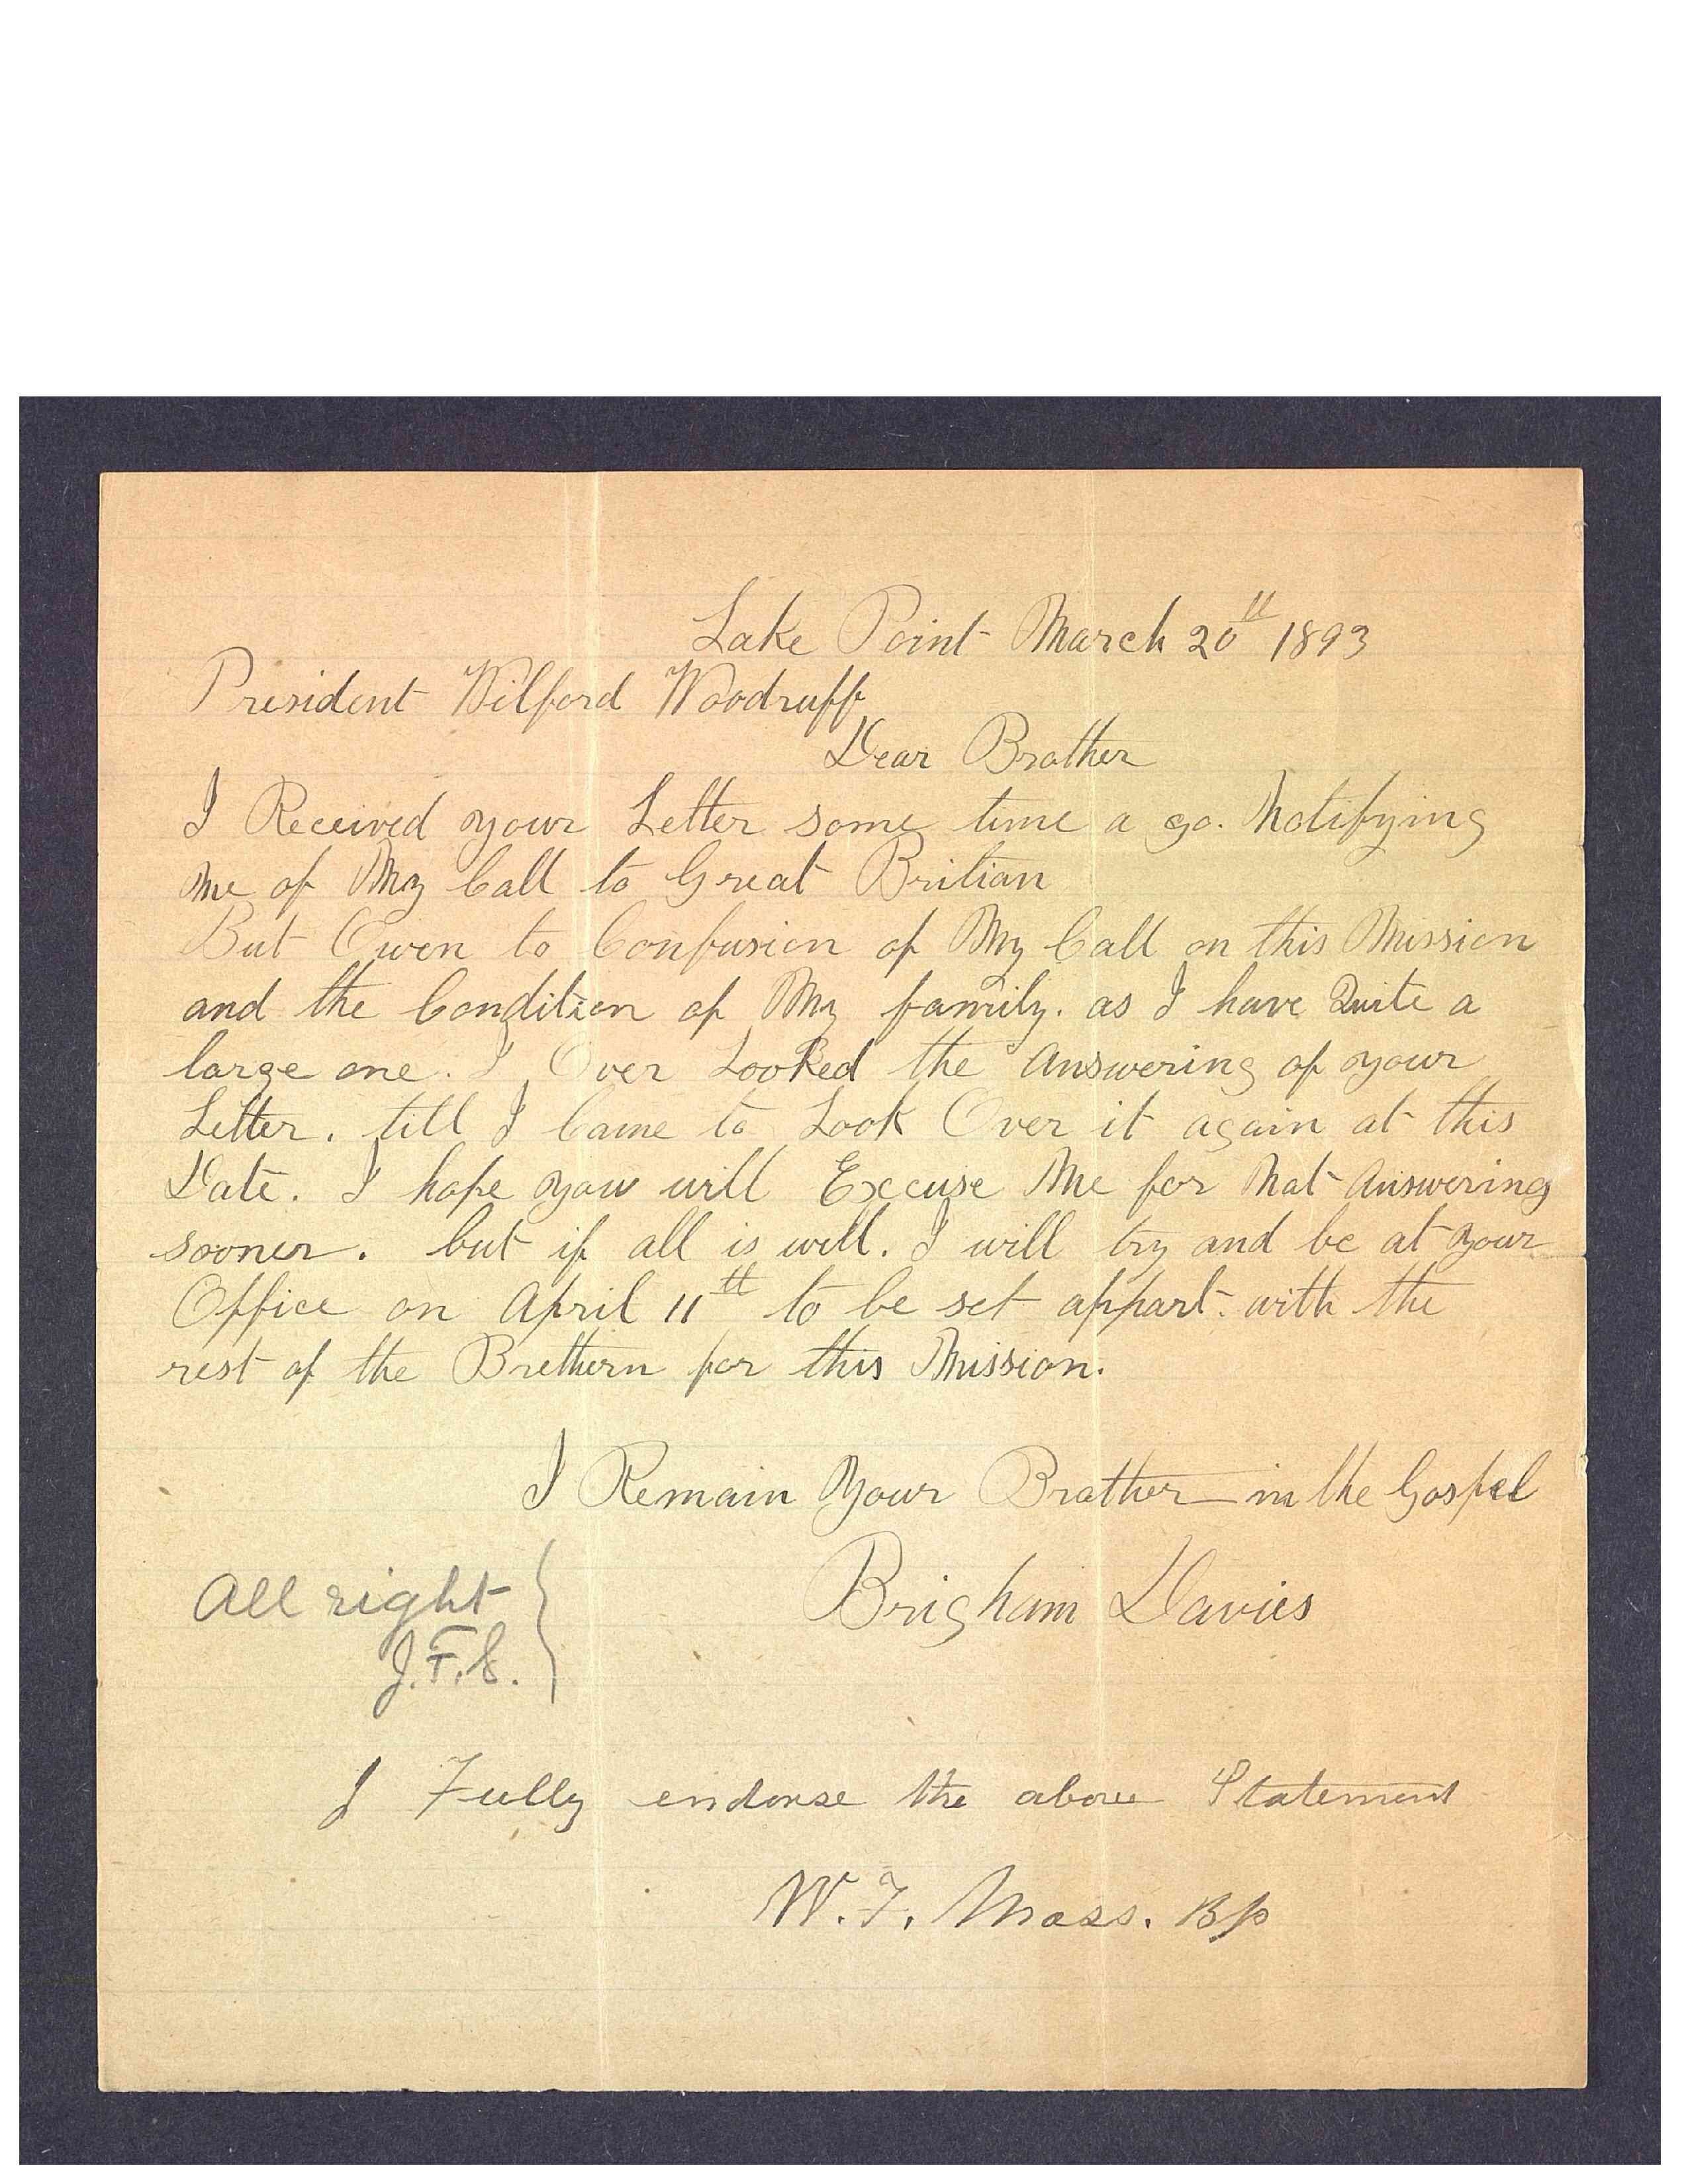 Lake Point March 20th 1893
President Wilford Woodruff
Dear Brother
I Received your Letter some time a go. Notifying
me of My Call to Great Britian
But Owen to Confusion of My Call on this Mission
and the Condition of My family. as I have Quite a
large one. I Over Looked the Answering of your
Letter. till I Came to Look Over it again at this
Date. I hope you will Excuse Me for Not Answering
sooner. but if all is well. I will try and be at your
Office on April 11th to be set appart. with the
rest of the Brethern for this Mission.
I Remain Your Brother in the Gospel
Brigham Davies
All right
J.F.S.
I Fully endorse the above Statement
W. F. Moss. Bp